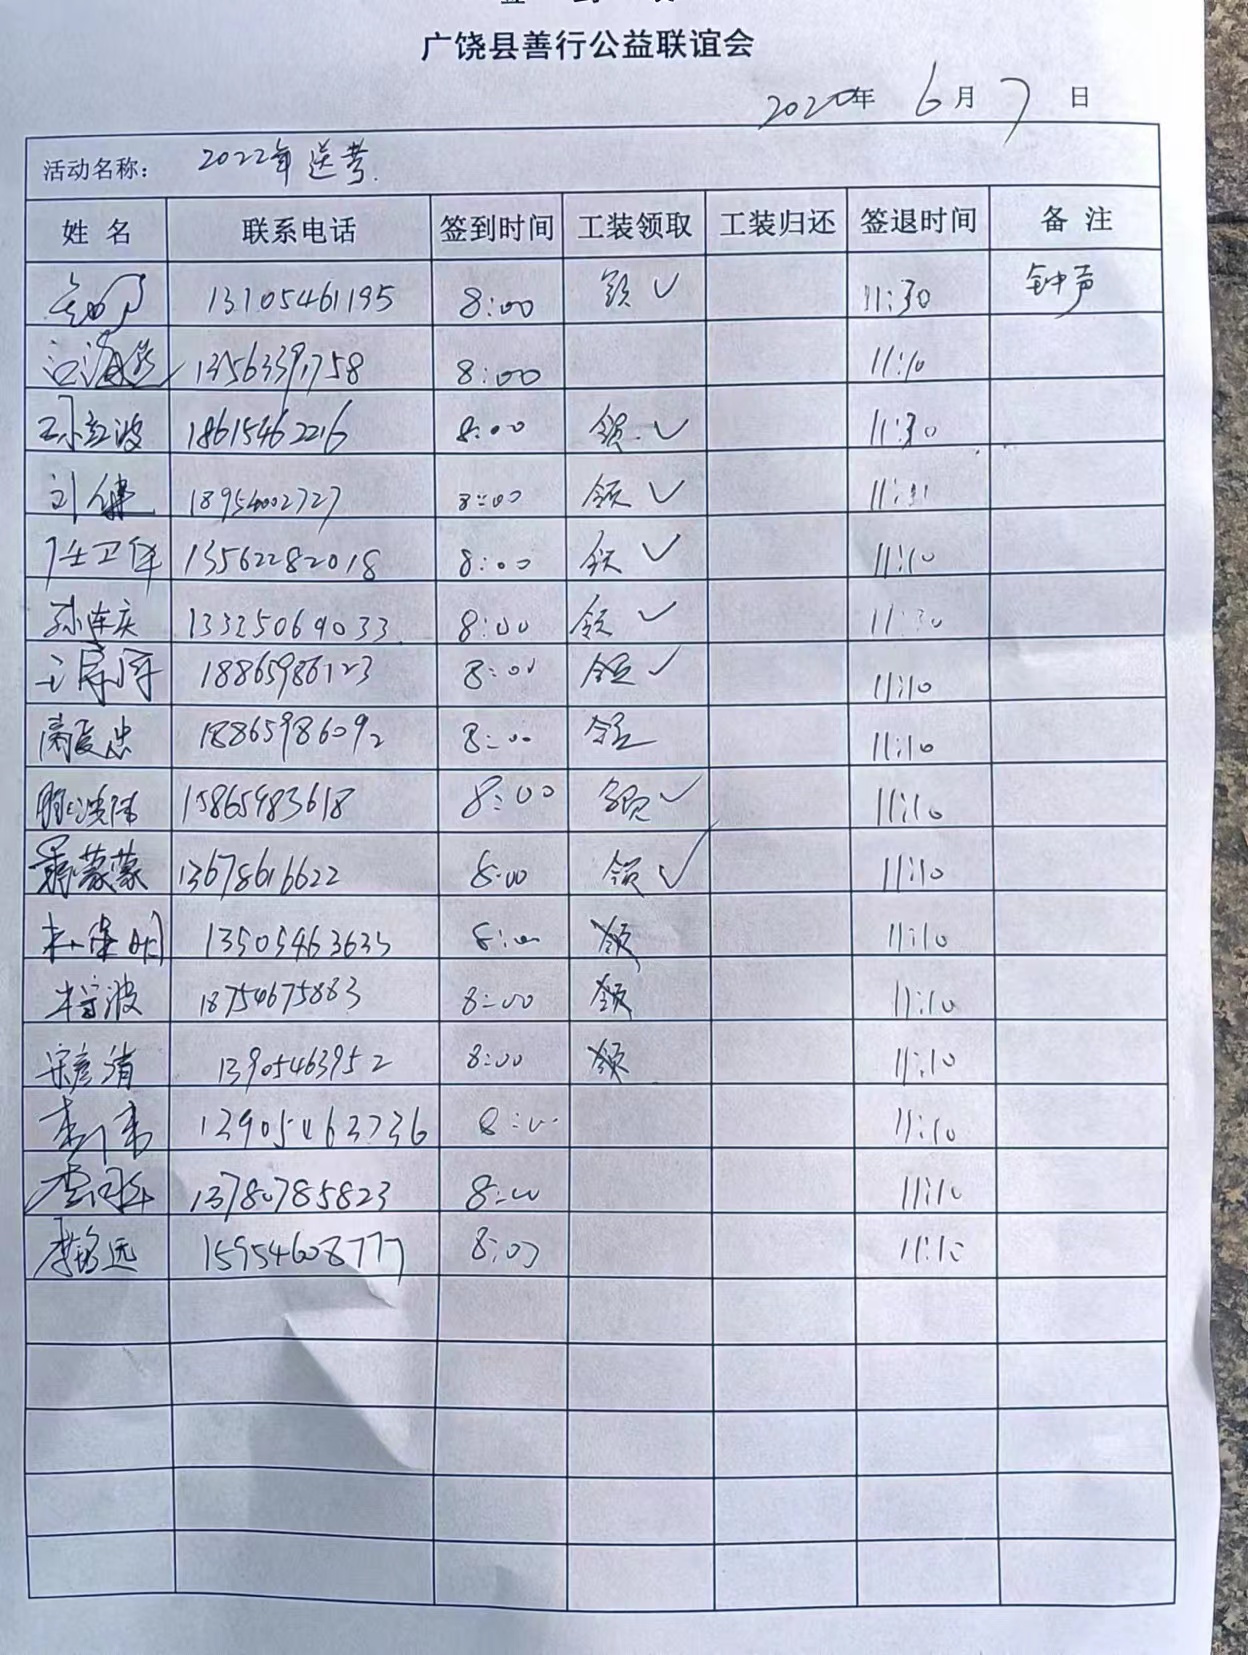 广饶县善行公益联谊会
2022年 6月 7日
活动名称: 2022年送考.
姓名 联系电话 签到时间 工装领取 工装归还 签退时间 备注
13105461195 8:00 领 ✓ 11:30 钟声
8:00 11:10
孙立波 18615462216 8:00 领 ✓ 11:30
刘健 18954002727 8:00 领 ✓
任卫军 13562282018 8:00 领 ✓ 11:10
孙连庆 13325069033 8:00 领 ✓ 11:30
18865986123 8:00 领 ✓ 11:10
18865986092 8:00 领 11:10
15865983618 8:00 领 ✓ 11:10
蒙蒙 13678616622 8:00 领 ✓ 11:10
13505463633 8:00 领 11:10
波 18754675883 8:00 领 11:10
宋彦清 13905463952 8:00 领 11:10
8:00 11:10
13780785823 8:00 11:10
15954608777 8:00 11:10